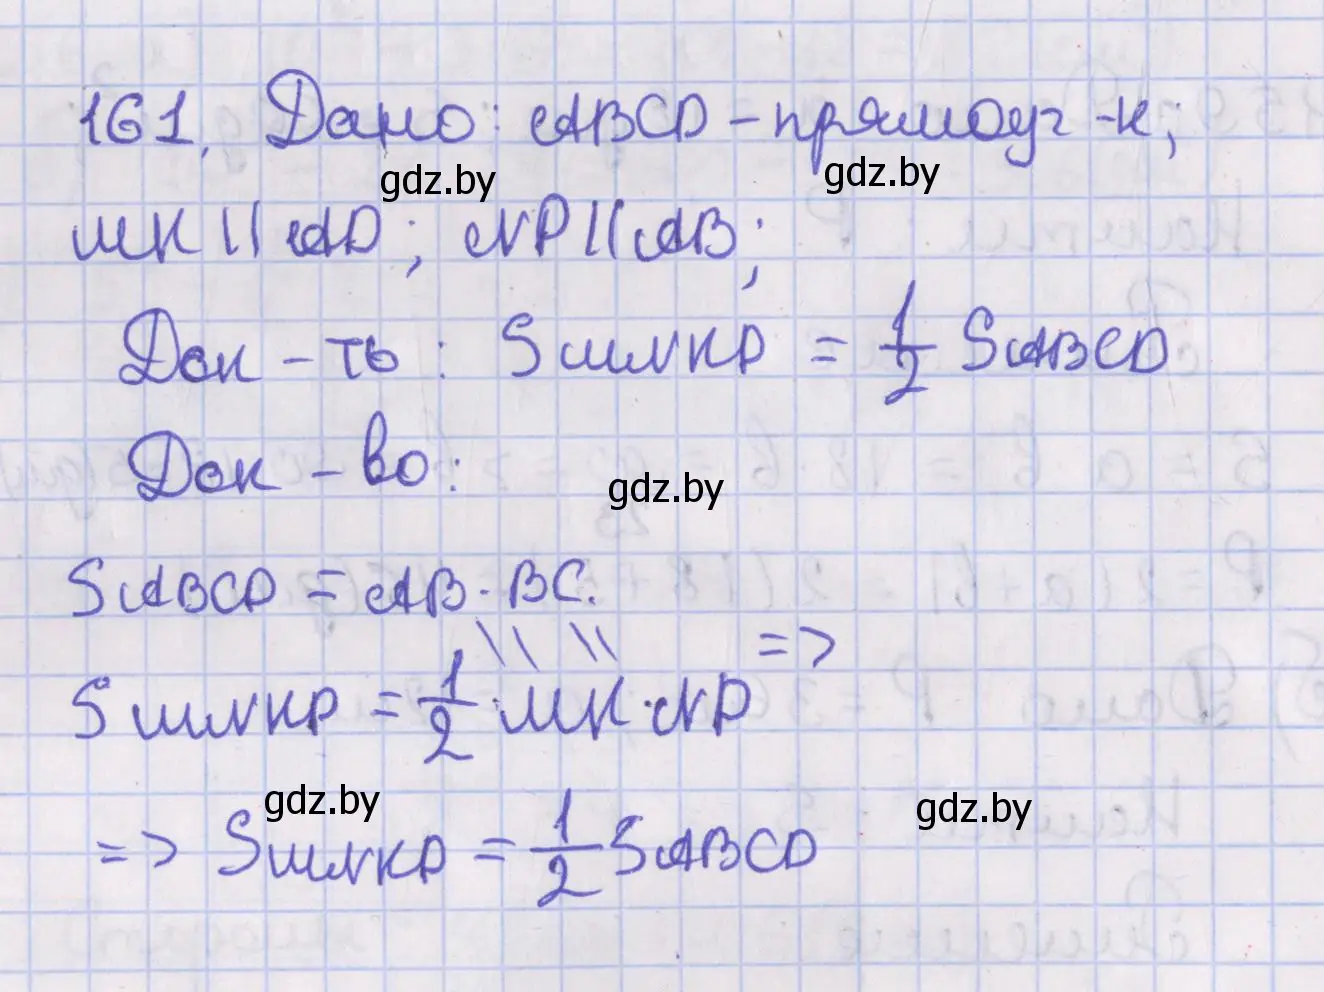 161. Дано: ABCD – прямоуг-к;
gdz.by gdz.by
MK || AD; NP || AB;
Док-ть: SMNKP = 1/2 SABCD
Док-во:
gdz.by
SABCD = AB · BC.
\\ \\ =>
SMNKP = 1/2 · MK · NP
gdz.by gdz.by
=> SMNKP = 1/2 SABCD